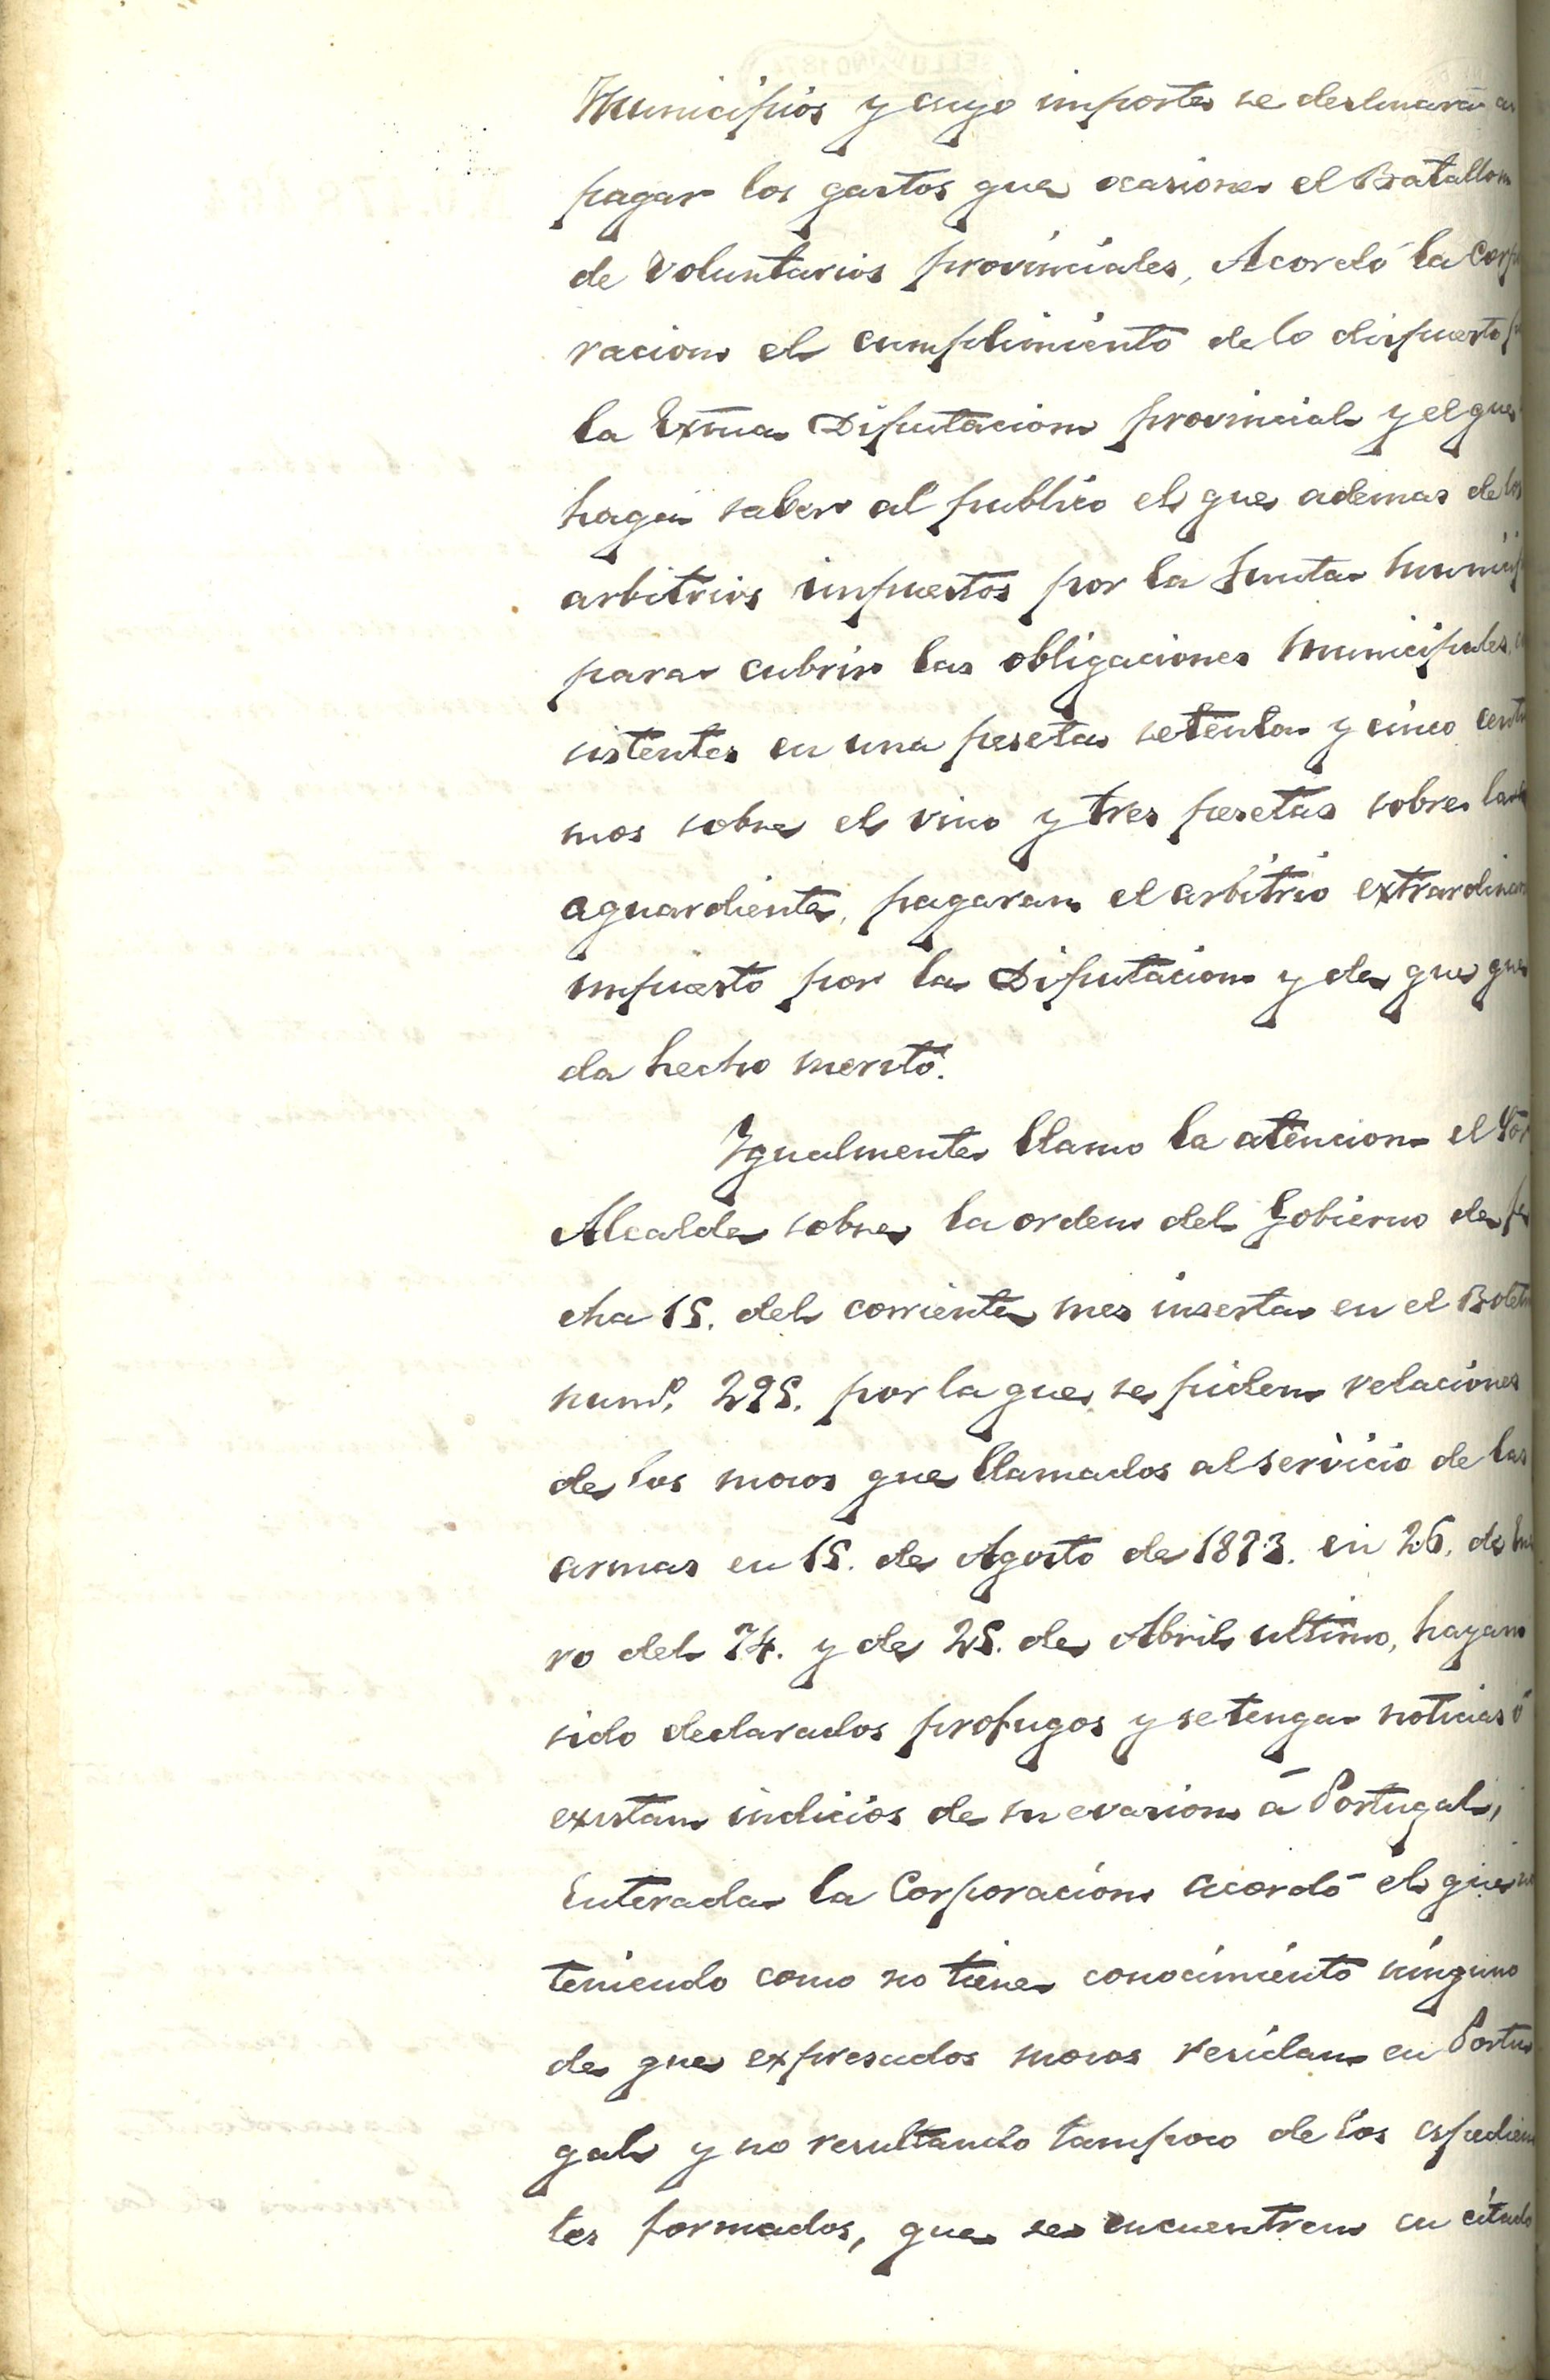 Municipios y cuyo importe se destinará a
pagar los gastos que ocasione el Batallon
de Voluntarios provinciales, Acordó la Corpo
racion el cumplimiento de lo dispuesto p
la Exma Diputacion provincial y el que
haga saber al publico el que ademas de los
arbitrios impuestos por la Junta municip
para cubrir las obligaciones municipales, 
sistentes en una peseta setenta y cinco centi
mos sobre el vino y tres pesetas sobre
aguardiente, pagaran el arbitrio extrardinar
impuesto por la Diputacion y de que que
da hecho merito.
Igualmente llamo la atencion el Sor
Alcalde sobre la orden del Gobierno de fe
cha 15. del corriente mes inserta en el Boletin
numº. 295. por la que se piden relaciones
de los mozos que llamados al servicio de las
armas en 15. de Agosto de 1873. en 26. de Ene
ro del 74. y de 25. de Abril ultimo, hayan
sido declarados profugos y se tenga noticias ó
existan indicios de su evasion á Portugal,
Enterada la Corporacion acordó el que no
teniendo como no tiene conocimiento ninguno
de que expresados mozos residan en Portu
gal y no resultando tampoco de los espedien
tes formados, que se encuentren en citado